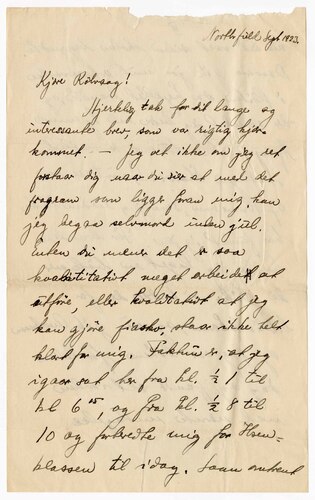 Northfield Sept. 1923.
Kjære Rölvaag!
Hjertelig tak for dit lange og
interessante brev, som var rigtig hjer-
kommet. — Jeg vet ikke om jeg ret
forstaar dig naar du sier at med det
program som ligger foran mig, kan
jeg begaa selvmord inden jul.
Enten du mener det er saa
kvalitativt meget arbeide at
utföre, eller kvalitativt at jeg
kan gjöre fiasko, staar ikke helt
klart for mig. Faktum er, at jeg
igaar sat her fra kl. ½ 1 til
kl 6 15, og fra kl. ½ 8 til
10 og forberedte mig for
klassen til idag. Saan omtrent